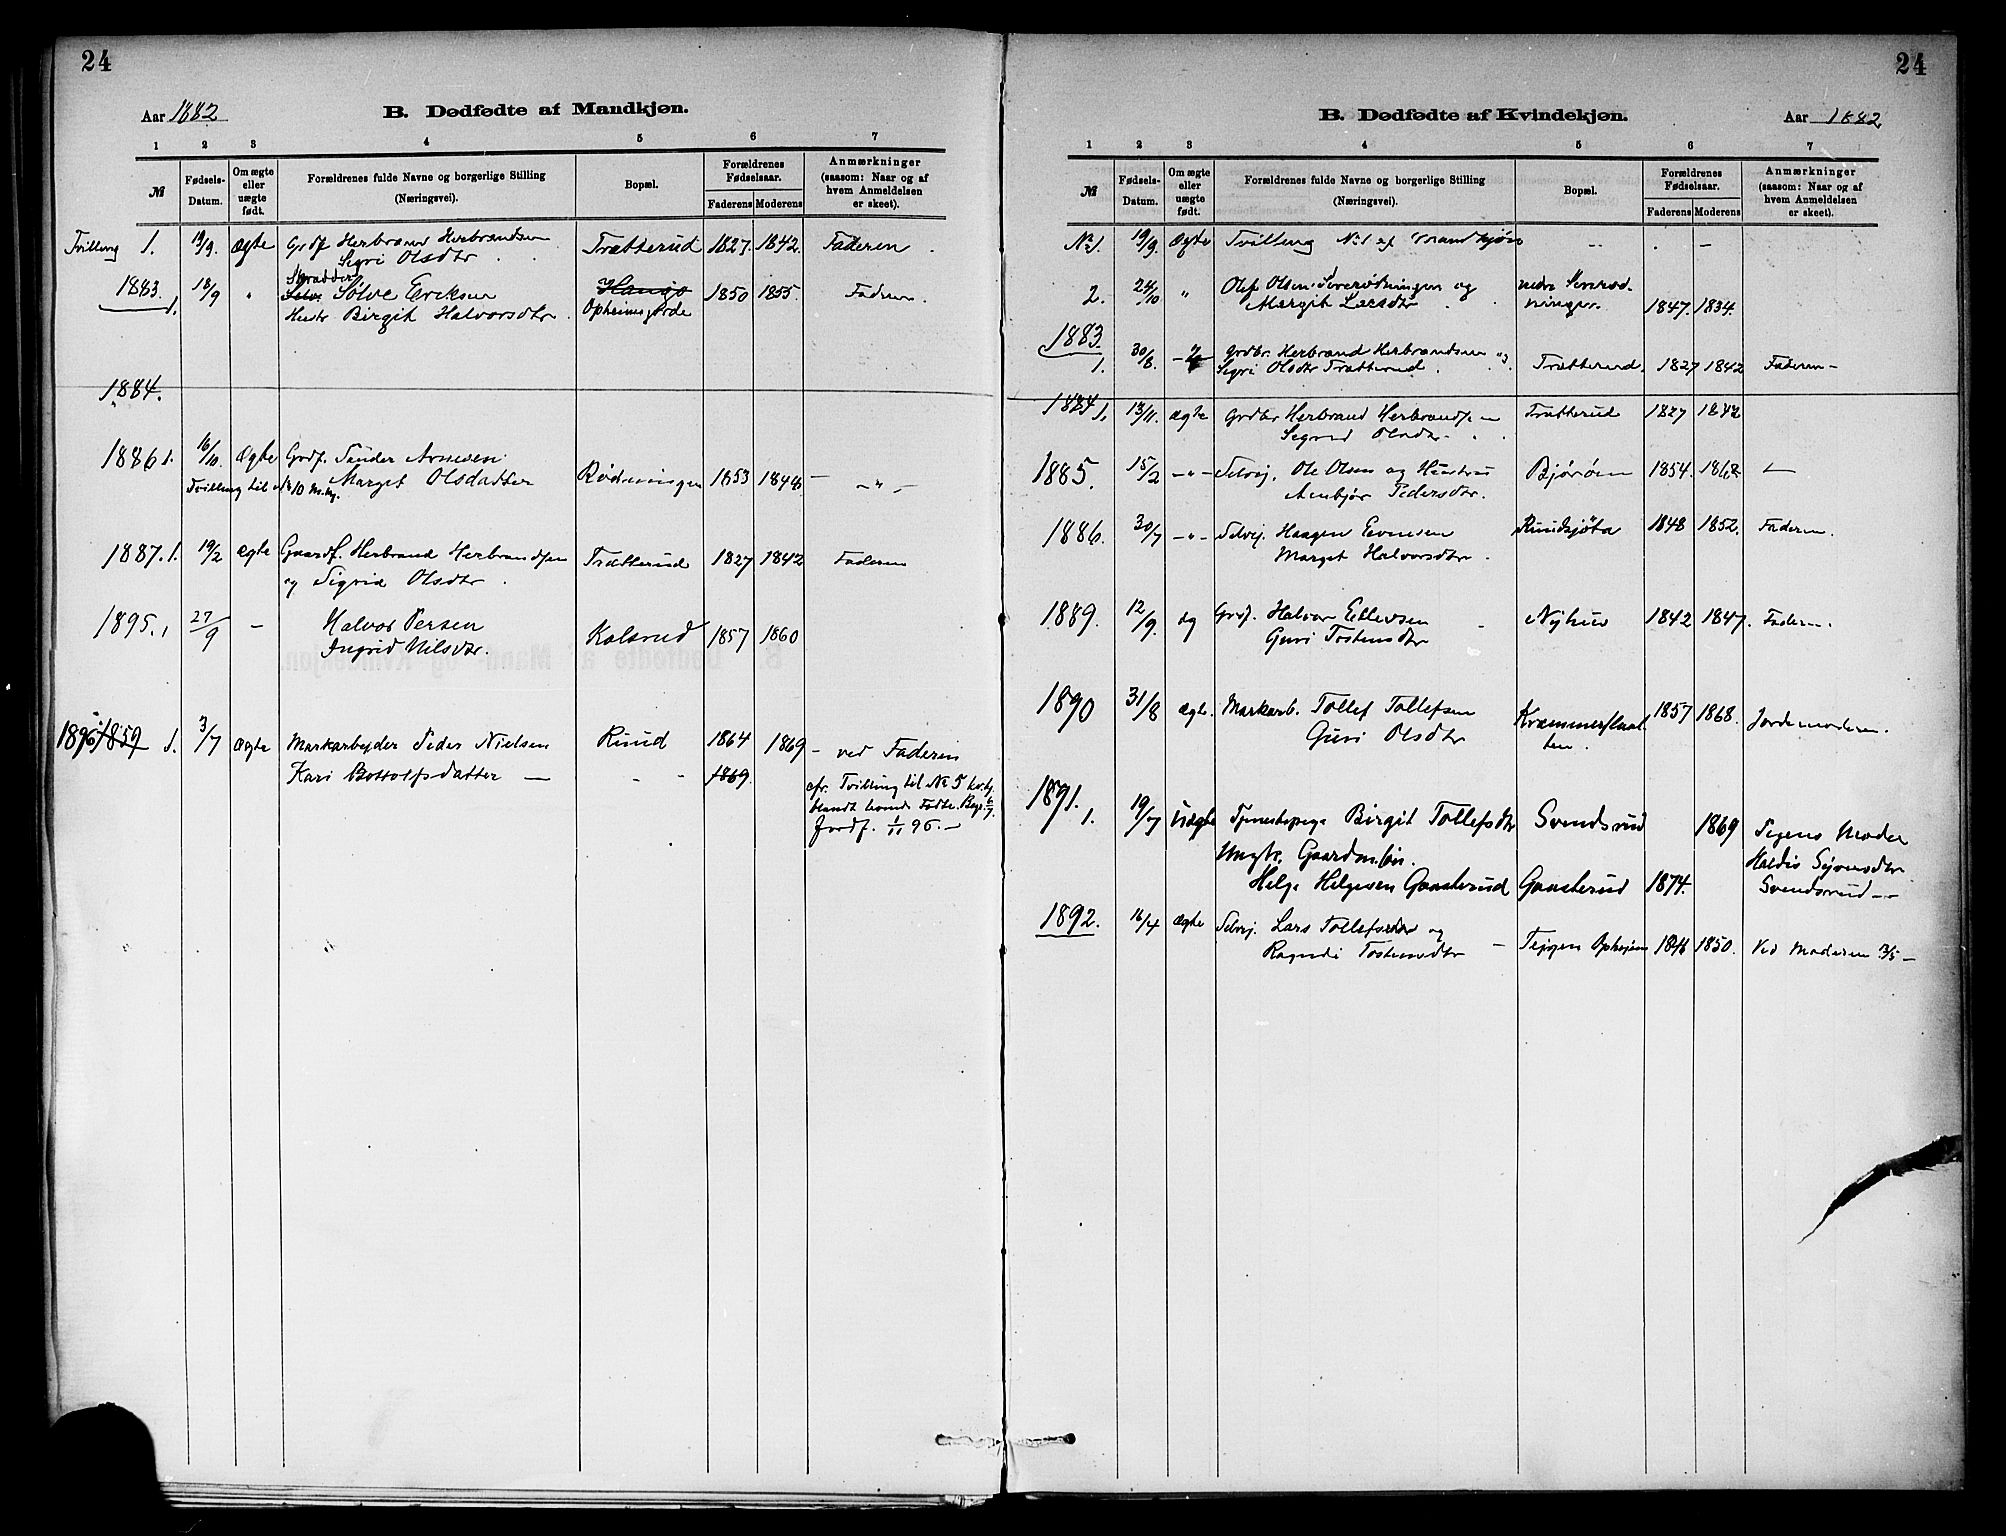 24
Aar 1882 B. Dødfødte af Mandkjøn.
1 2 3 4 5 6 7
№ Fødsels-Datum. Om ægte eller uægte født. Forældrenes fulde Navne og borgerlige Stilling (Næringsvei). Bopæl. Forældrenes Fødselsaar. Faderens Moderens Anmærkninger (saasom: Naar og af hvem Anmeldelsen er skeet).
Tvilling 1. 19/9. Ægte Grdf Herbrand Herbrandsen Trætterud 1827. 1842. Faderen
Sigri Olsdtr
1883. Skrædder
1. 18/9 " Sølve Eriksen Haugo 1850 1855. Faderen.
Hustr Birgit Halvorsdtr. Opheimsjorde
1884.
1886 1. 16/10. Ægte Grdf. Sander Arnesen Rødningen 1853 1848 – " –
Tvilling til № 10 M.kj. Marget Olsdatter
1887. 1. 19/2 Ægte Gaardf. Herbrand Herbrandsen Trætterud 1827 1842 Faderen
og Sigrid Olsdtr.
1895. 1 27/9 – Halvor Persen Kolsrud 1857 1860
Ingrid Nilsdtr.
1896 1859 1. 3/7 Ægte Markarbejder Peder Nielsen Ruud 1864 1869 – ved Faderen
Kari Bottolfsdatter – " " 1869.
cfr. Tvilling til № 5 kv.kj.
blandt levende Fødte. Begr. 6/7.
Jordf. 1/11 96. –
24
B. Dødfødte af Kvindekjøn. Aar 1882
1 2 3 4 5 6 7
№ Fødsels-Datum. Om ægte eller uægte født. Forældrenes fulde Navne og borgerlige Stilling (Næringsvei). Bopæl. Forældrenes Fødselsaar. Faderens Moderens Anmærkninger (saasom: Naar og af hvem Anmeldelsen er skeet).
№ 1. 19/9. Ægte Tvilling № 1 af Mandkjøn – . –
2. 24/10 " Olef Olsen Sevrodningen og nedre Sevrod-
Margit Larsdtr ningen. 1847. 1834.
1883.
1. 30/8. – " Grdbr. Herbrand Herbrandsen og
Sigri Olsdtr Trætterud. Trætterud. 1827 1842 Faderen –
1884 1. 13/11. Ægte Grdbr Herbrand Herbrandsen Trætterud 1827 1842
Sigrid Olsdtr.
1885. 15/2 – " – Selvej. Ole Olsen og Hustru Bjørøen 1854. 1862 –
Ambjør Pedersdtr.
1886. 30/7 – " – Selvej. Haagen Evensen Ruudsjøta 1848 1852. Faderen.
Marget Halvorsdtr.
1889. 12/9. og Grdf. Halvor Ellevsen Nyhus 1842 1847. Faderen.
Guri Tostensdtr
1890 31/8 Ægte. Markarb. Tollef Tollefsen Kræmmerslaat- 1857 1868. Jordemoderen.
Guri Olsdtr ten.
1891. 1. 19/7 Uægte Tjenestepige Birgit Tollefsdtr Svendsrud 1869 Pigens Moder
Ungk. Gaardm.søn. Haldis Syversdtr
Helge Helgesen Gaasterud Gaasterud 1874. Svendsrud –
1892. 16/4 Ægte Selvej. Lars Tollefsen og
Ragndi Tostensdtr – Teigen Ophejm 1846 1850. Ved Moderen 3/5 –